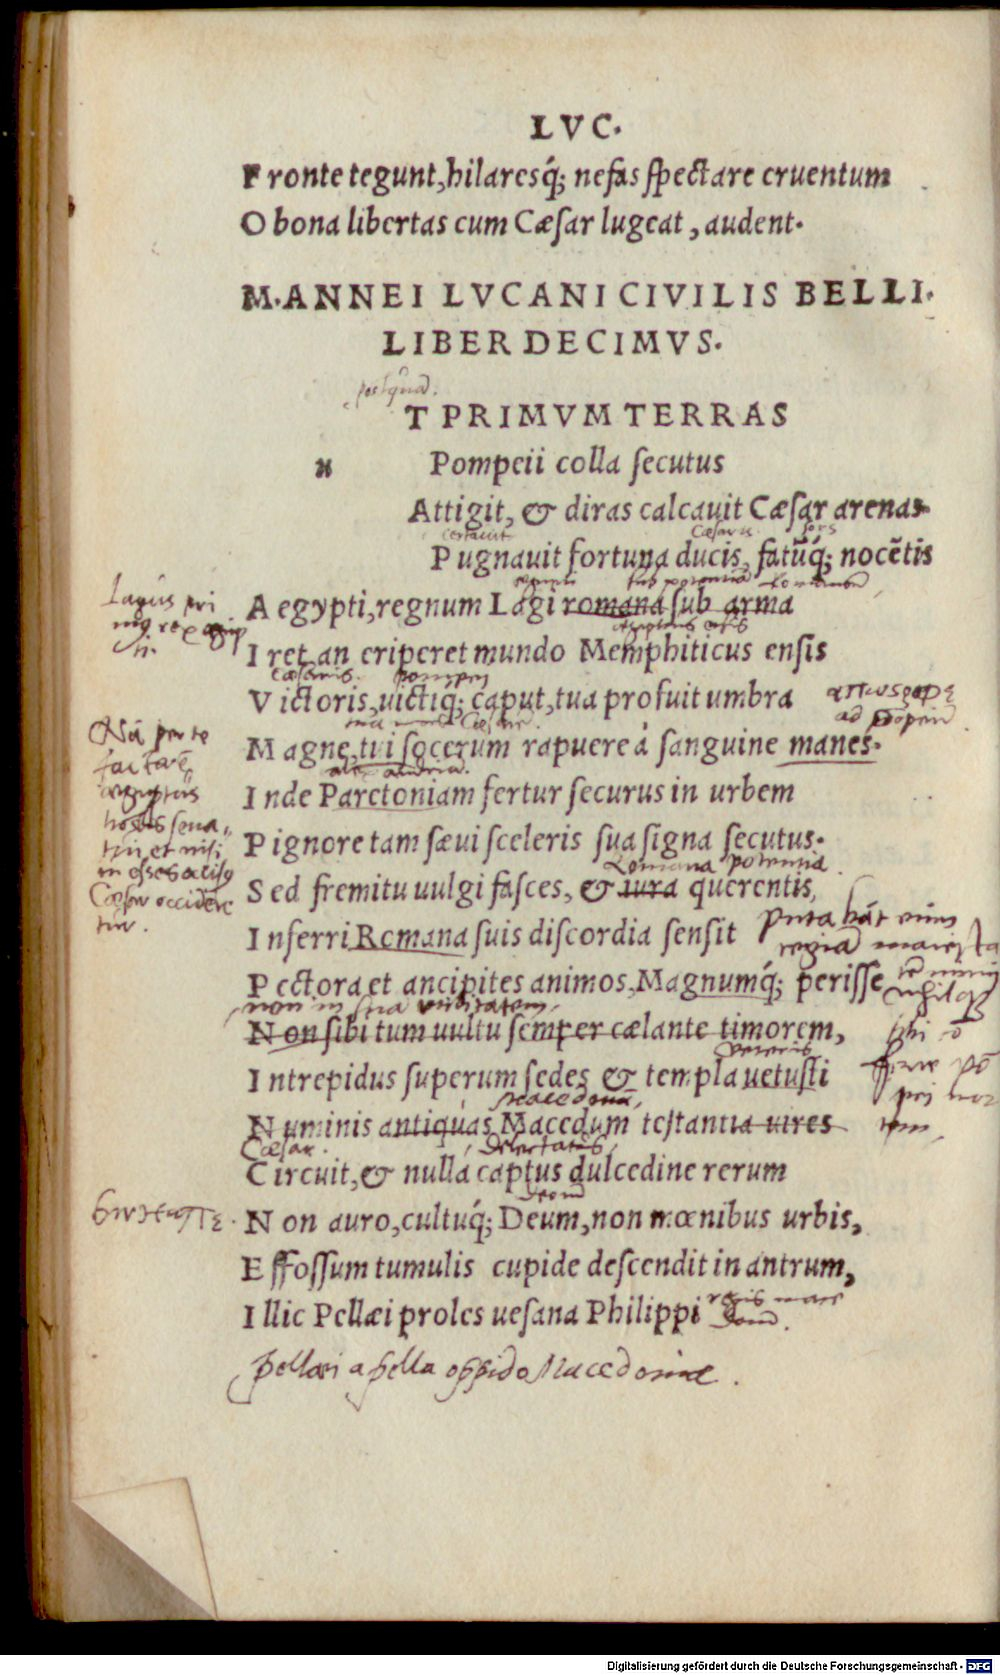 LVC.
Fronte tegunt, hilaresq́; nefas spectare cruentum
O bona libertas cum Cæsar lugeat, audent.
M. ANNEI LVCANI CIVILIS BELLI.
LIBER DECIMVS.
postquā.
T PRIMVM TERRAS
Pompeii colla secutus
Attigit, & diras calcauit Cæsar arenas.
certauit Cæsaris sors
Pugnauit fortuna ducis, fatūq́; nocētis
Lagus pri
mus rex
Aegypti, regnum Lagi romana sub arma
Iret, an eriperet mundo Memphiticus ensis
Cæsaris. pompeij
Victoris, uictiq́; caput, tua profuit umbra
ad pompeiū
Magne, tui socerum rapuere à sanguine manes.
Nā per te
Inde Parætoniam fertur securus in urbem
Pignore tam sæui sceleris sua signa secutus.
Romana potentia.
Sed fremitu uulgi fasces, & iura querentis,
Cæsar occidere
tur.
Inferri Romana suis discordia sensit
Putabāt enim
regiā maiesta
Pectora et ancipites animos, Magnumq́; perisse
non in sua utilitatem,
Non sibi tum uultu semper cælante timorem,
veteris
Intrepidus superum sedes & templa uetusti
macedonū,
Numinis antiquas Macedum testantia uires
Cæsar.
Circuit, & nulla captus dulcedine rerum
deorū
Non auro, cultuq́; Deum, non mœnibus urbis,
Effossum tumulis cupide descendit in antrum,
Illic Pellæi proles uesana Philippi
pellæi a pella oppido Macedoniæ.
Digitalisierung gefördert durch die Deutsche Forschungsgemeinschaft - DFG